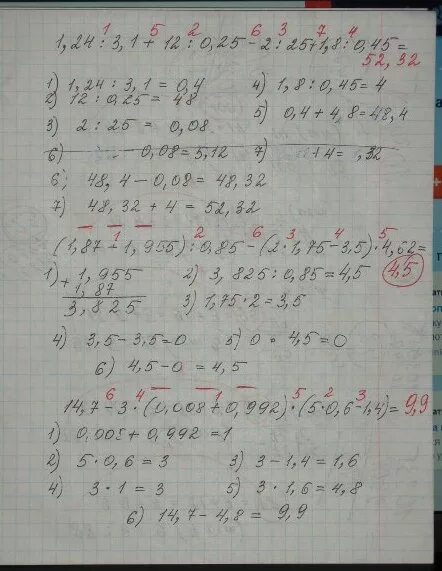 1 5 2 6 3 7 4
1,24 : 3,1 + 12 : 0,25 - 2 : 25 + 1,8 : 0,45 =
52,32
1) 1,24 : 3,1 = 0,4 4) 1,8 : 0,45 = 4
2) 12 : 0,25 = 48 5) 0,4 + 4,8 = 48,4
3) 2 : 25 = 0,08
6) - 0,08 = 5,12 7) + 4 = ,32
6) 48,4 - 0,08 = 48,32
7) 48,32 + 4 = 52,32
1 2 6 3 4 5
(1,87 + 1,955) : 0,85 - (2 · 1,75 - 3,5) · 4,62 =
4,5
1) + 1,955 2) 3,825 : 0,85 = 4,5
1,87
3,825 3) 1,75 · 2 = 3,5
4) 3,5 - 3,5 = 0 5) 0 · 4,5 = 0
6) 4,5 - 0 = 4,5
6 4 1 5 2 3
14,7 - 3 · (0,008 + 0,992) · (5 · 0,6 - 1,4) = 9,9
1) 0,008 + 0,992 = 1
2) 5 · 0,6 = 3 3) 3 - 1,4 = 1,6
4) 3 · 1 = 3 5) 3 · 1,6 = 4,8
6) 14,7 - 4,8 = 9,9